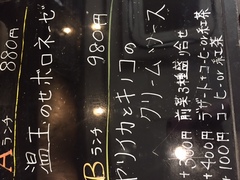 Aランチ 880円
温玉のせボロネーゼ
Bランチ 980円
ヤリイカとキノコの
クリームソース
+300円 前菜3種盛り合せ
+400円 デザート+コーヒーor紅茶
+100円 コーヒーor紅茶